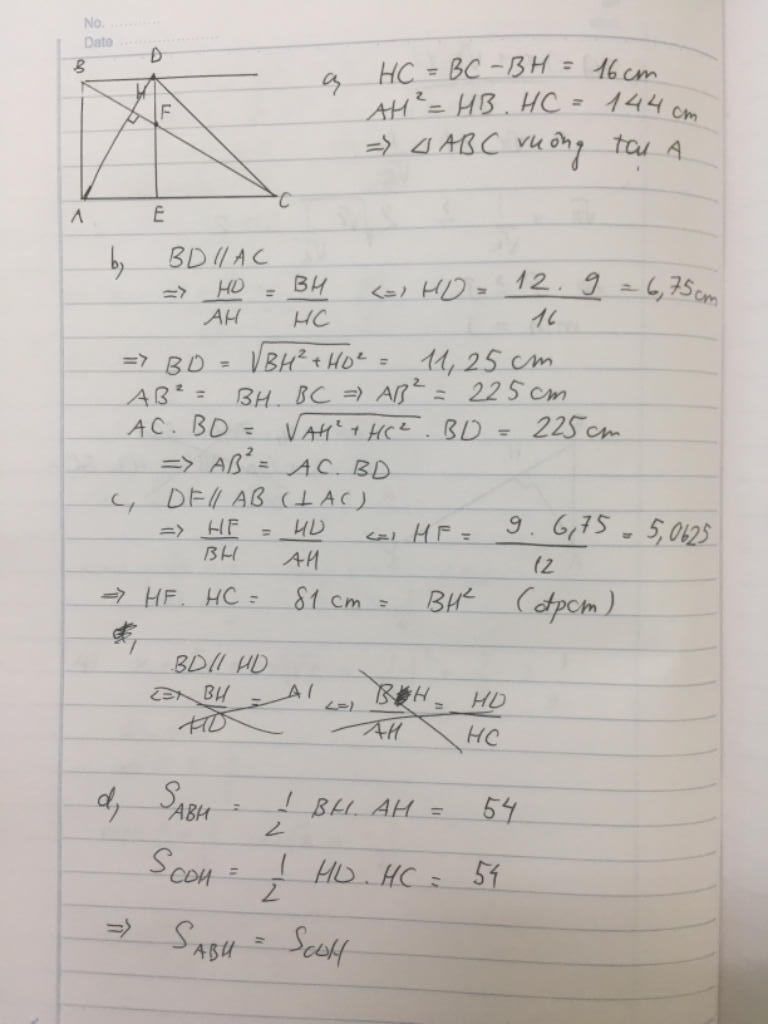 No. ............
Date ......................
B
D
H
F
A
E
C
a, HC = BC - BH = 16 cm
AH² = HB . HC = 144 cm
=> △ABC vuông tại A
b, BD // AC
=> HD/AH = BH/HC <=> HD = 12 . 9/16 = 6,75 cm
=> BD = √(BH² + HD²) = 11,25 cm
AB² = BH. BC => AB² = 225 cm
AC. BD = √(AH² + HC²) . BD = 225 cm
=> AB² = AC. BD
c, DF // AB (⊥ AC)
=> HF/BH = HD/AH <=> HF = 9 . 6,75/12 = 5,0625
=> HF. HC = 81 cm = BH² (đpcm)
BD // HD
<=> BH/HD = AI <=> BH/AH = HD/HC
d, S_ABH = 1/2 BH. AH = 54
S_CDH = 1/2 HD . HC = 54
=> S_ABH = S_CDH